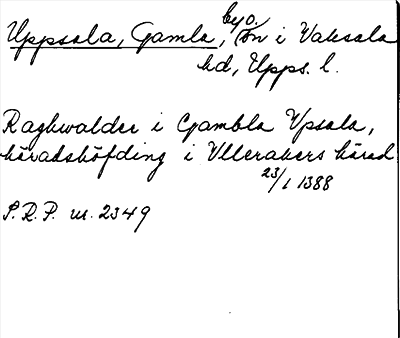 Uppsala, Gamla, by o. sn i Vaksala
hd, Upps. l.
Raghwalder i Gambla Vpsala,
häradshöfding i Vllerakers härad
23/1 1388
S.R.P. nr. 2349